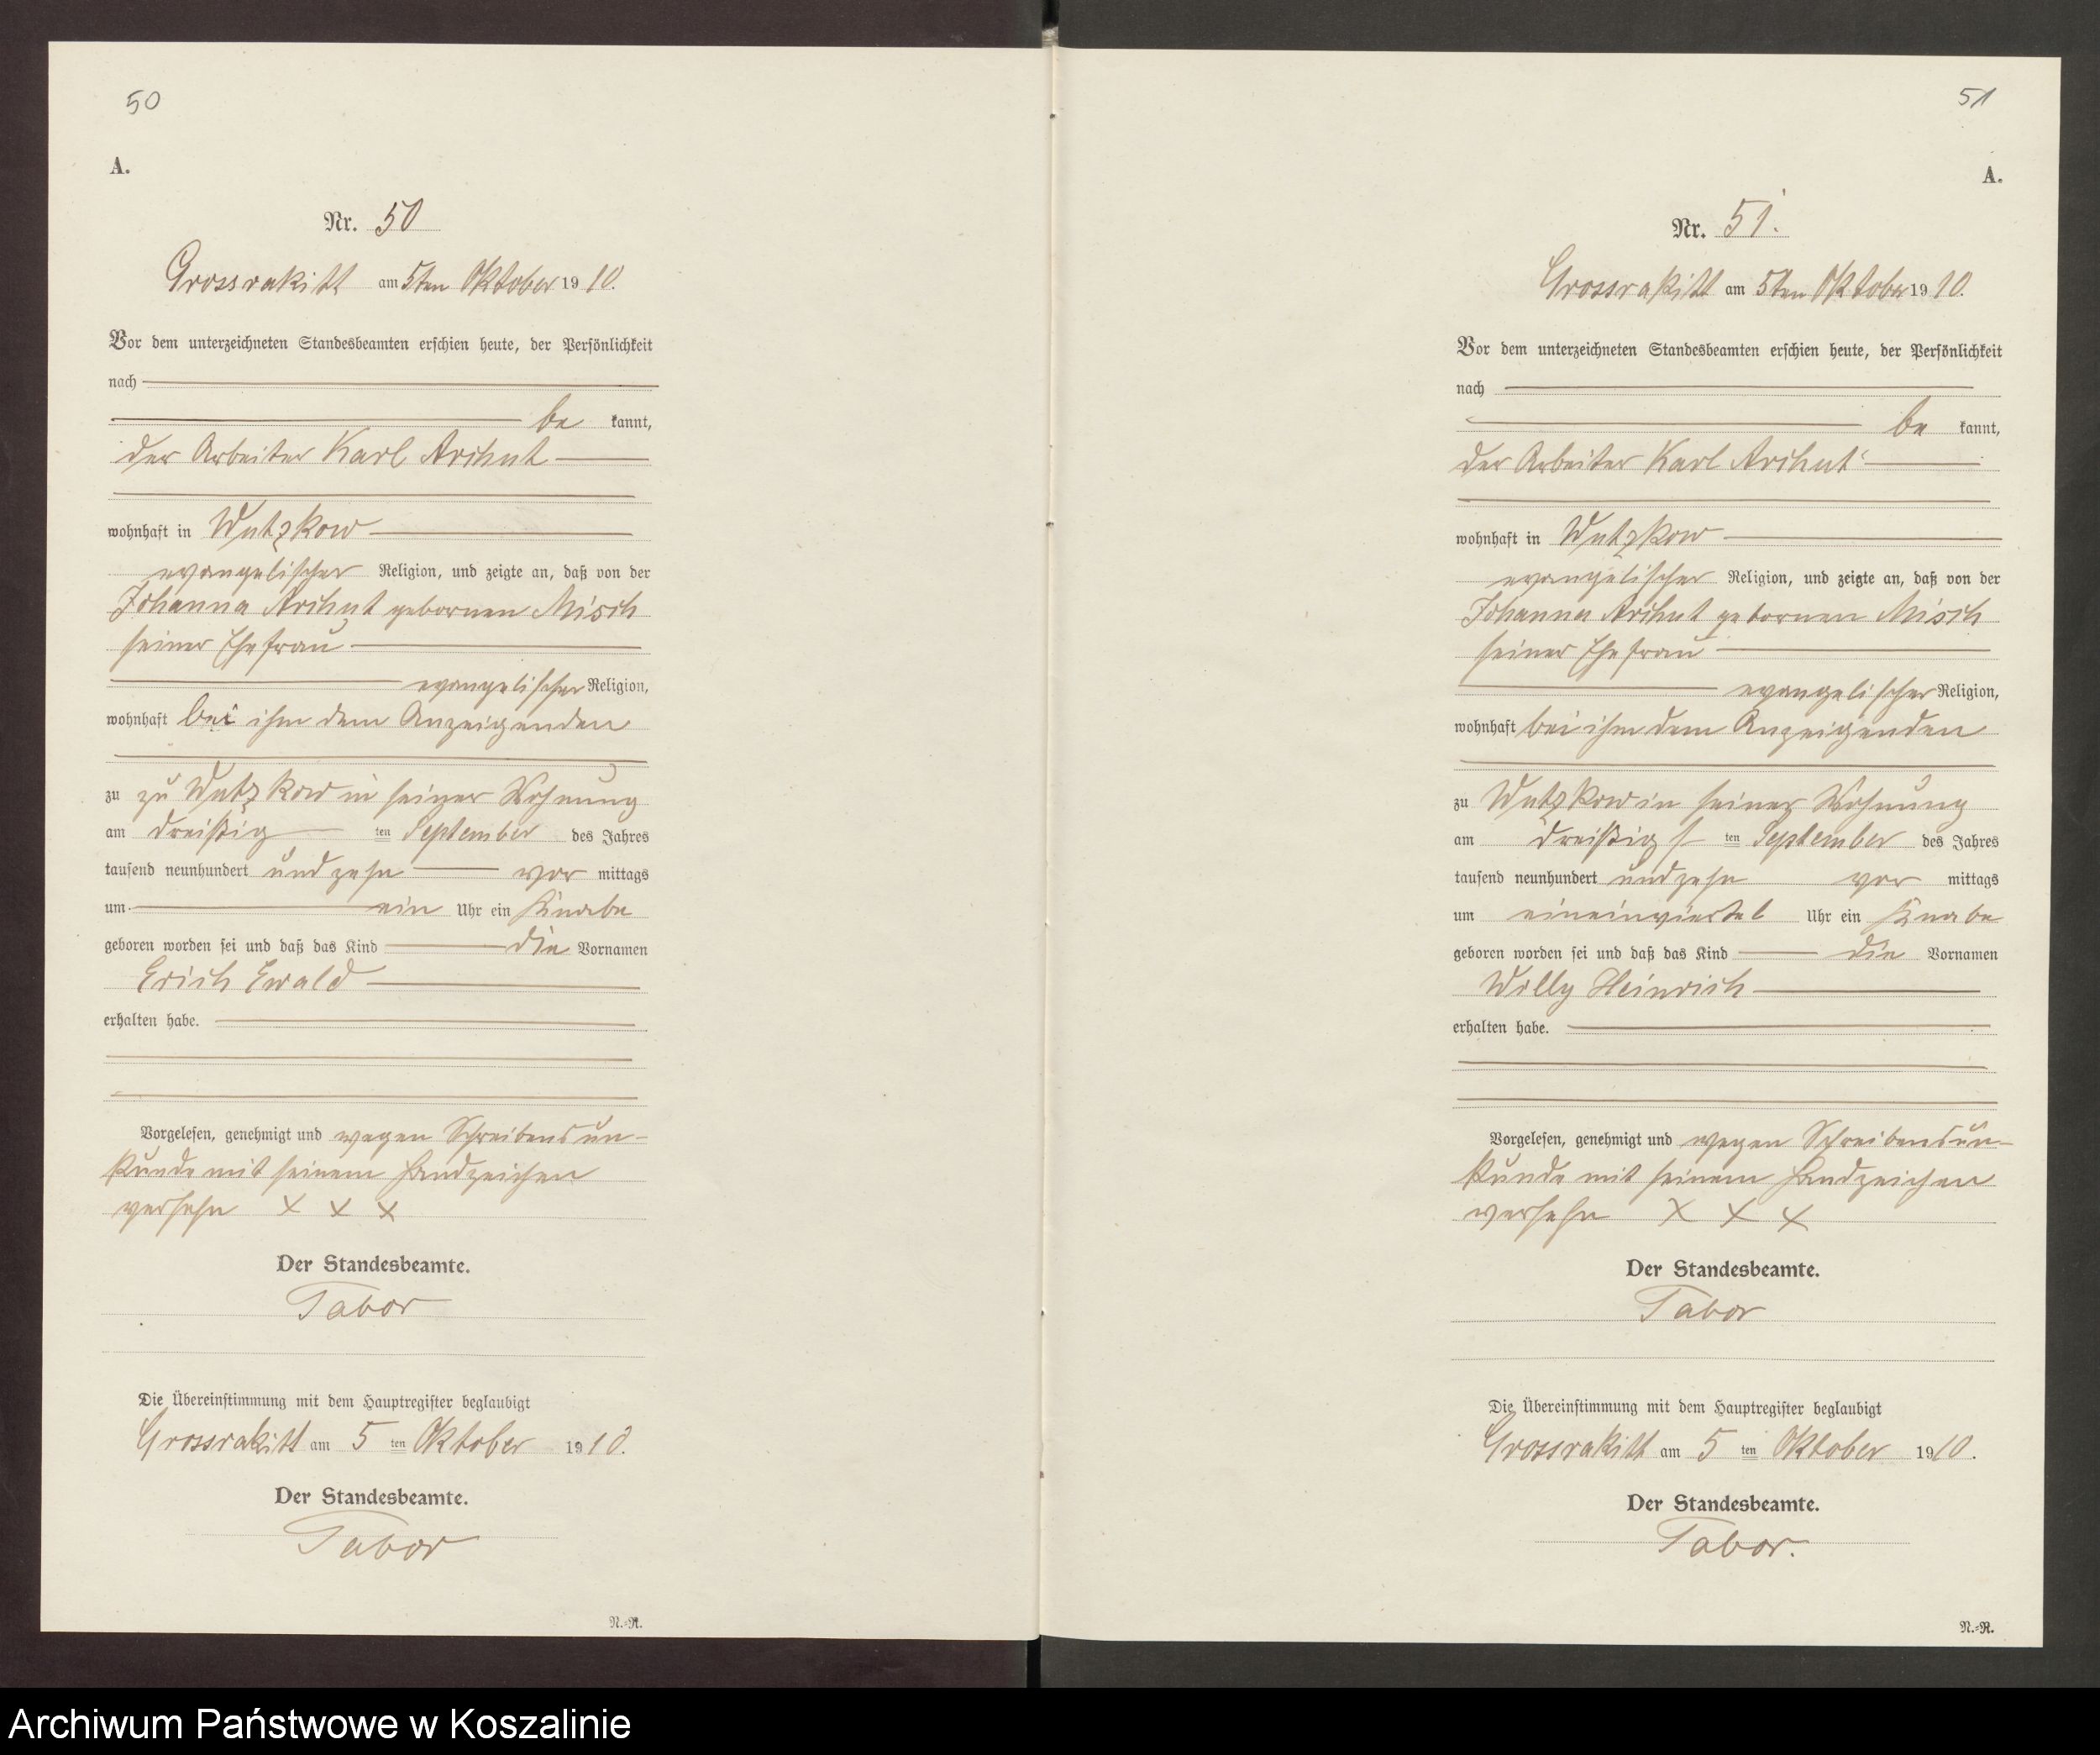 50
A.
Nr. 50
Grossrakitt am 5ten Oktober 1910.
Vor dem unterzeichneten Standesbeamten erschien heute, der Persönlichkeit
nach
be kannt,
der Arbeiter Karl Arihnt
wohnhaft in Wutzkow
evangelischer Religion, und zeigte an, daß von der
Johanna Arihnt gebornen Misch
seiner Ehefrau
evangelischer Religion,
wohnhaft bei ihm dem Anzeigenden
zu zu Wutzkow in seiner Wohnung
am dreißig ten September des Jahres
tausend neunhundert und zehn vor mittags
um ein Uhr ein Knabe
geboren worden sei und daß das Kind die Vornamen
Erich Ewald
erhalten habe.
Vorgelesen, genehmigt und wegen Schreibensun-
kunde mit seinem Handzeichen
versehn x x x
Der Standesbeamte.
Tabor
Die Übereinstimmung mit dem Hauptregister beglaubigt
Grossrakitt am 5 ten Oktober 1910.
Der Standesbeamte.
Tabor
N.=R.
51
A.
Nr. 51.
Grossrakitt am 5ten Oktober 1910.
Vor dem unterzeichneten Standesbeamten erschien heute, der Persönlichkeit
nach
be kannt,
der Arbeiter Karl Arihnt
wohnhaft in Wutzkow
evangelischer Religion, und zeigte an, daß von der
Johanna Arihnt gebornen Misch
seiner Ehefrau
evangelischer Religion,
wohnhaft bei ihm dem Anzeigenden
zu Wutzkow in seiner Wohnung
am dreißigs ten September des Jahres
tausend neunhundert und zehn vor mittags
um eineinviertel Uhr ein Knabe
geboren worden sei und daß das Kind die Vornamen
Willy Heinrich
erhalten habe.
Vorgelesen, genehmigt und wegen Schreibensun-
kunde mit seinem Handzeichen
versehn x x x
Der Standesbeamte.
Tabor
Die Übereinstimmung mit dem Hauptregister beglaubigt
Grossrakitt am 5 ten Oktober 1910.
Der Standesbeamte.
Tabor.
N.=R.
Archiwum Państwowe w Koszalinie